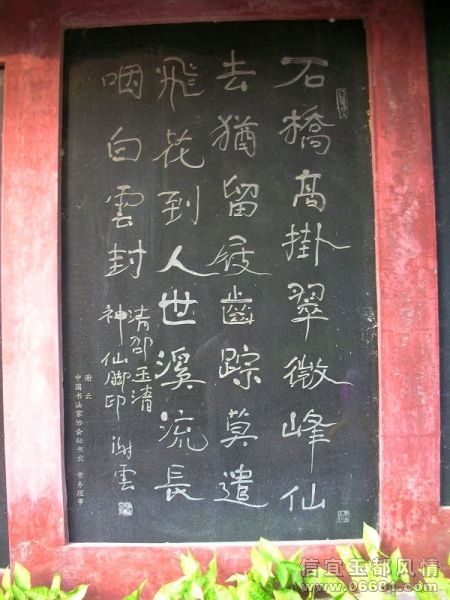 石橋高掛翠微峰仙
去猶留屐齒踪莫遣
飛花到人世溪流長
咽白雲封
清邵玉清
神仙脚印 謝雲
谢云
中国书法家协会秘书长 常务理事
信宜玉都风情
www.06681.com